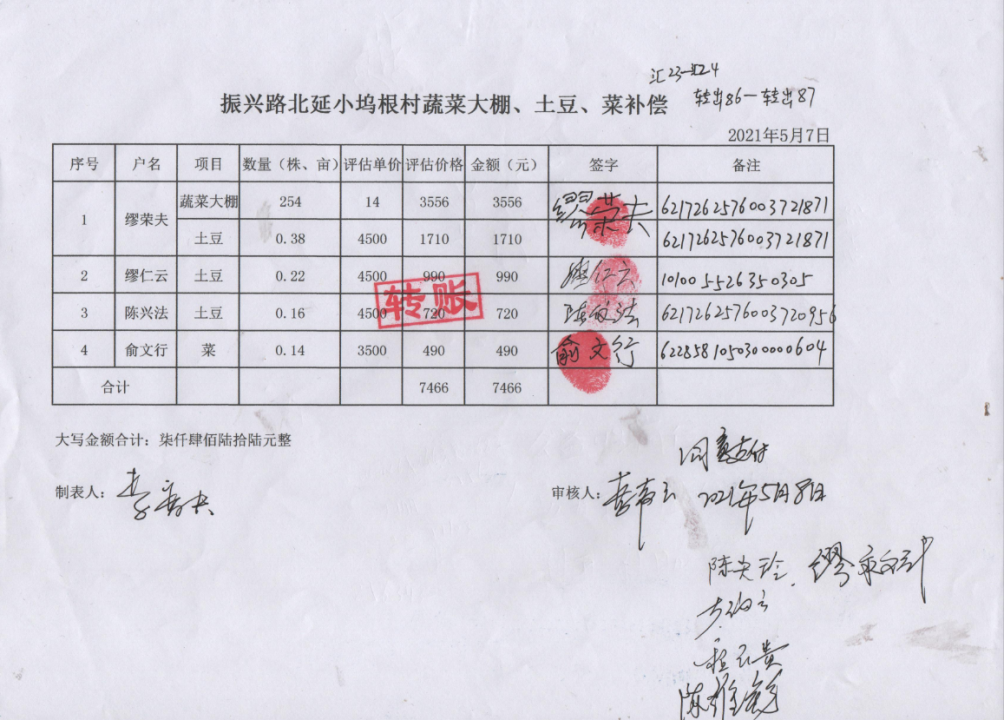 汇23-汇24
转出86一转出87
振兴路北延小坞根村蔬菜大棚、土豆、菜补偿
2021年5月7日
序号 户名 项目 数量（株、亩） 评估单价 评估价格 金额（元） 签字 备注
1 缪荣夫 蔬菜大棚 254 14 3556 3556 缪荣夫 6217262576003721871
土豆 0.38 4500 1710 1710 6217262576003721871
2 缪仁云 土豆 0.22 4500 990 990 缪仁云 101005526350305
3 陈兴法 土豆 0.16 4500 720 720 陈兴法 6217262576003720956
4 俞文行 菜 0.14 3500 490 490 俞文行 6228581050300000604
转账
合计 7466 7466
大写金额合计：柒仟肆佰陆拾陆元整
同意支付
制表人：
审核人： 2021年5月8日
陈央玲